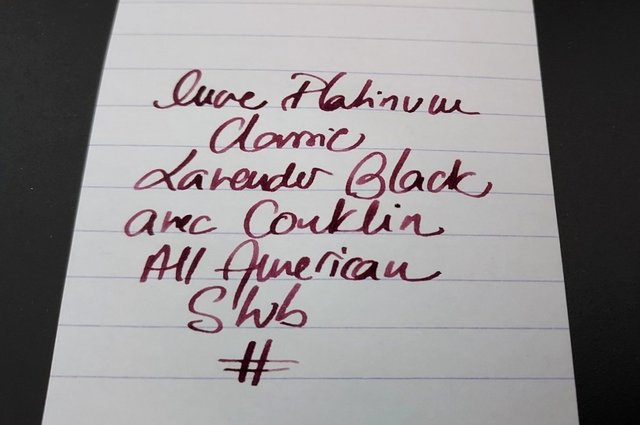 encre Platinum
Classic
Lavender Black
avec Conklin
All American
Stub
#